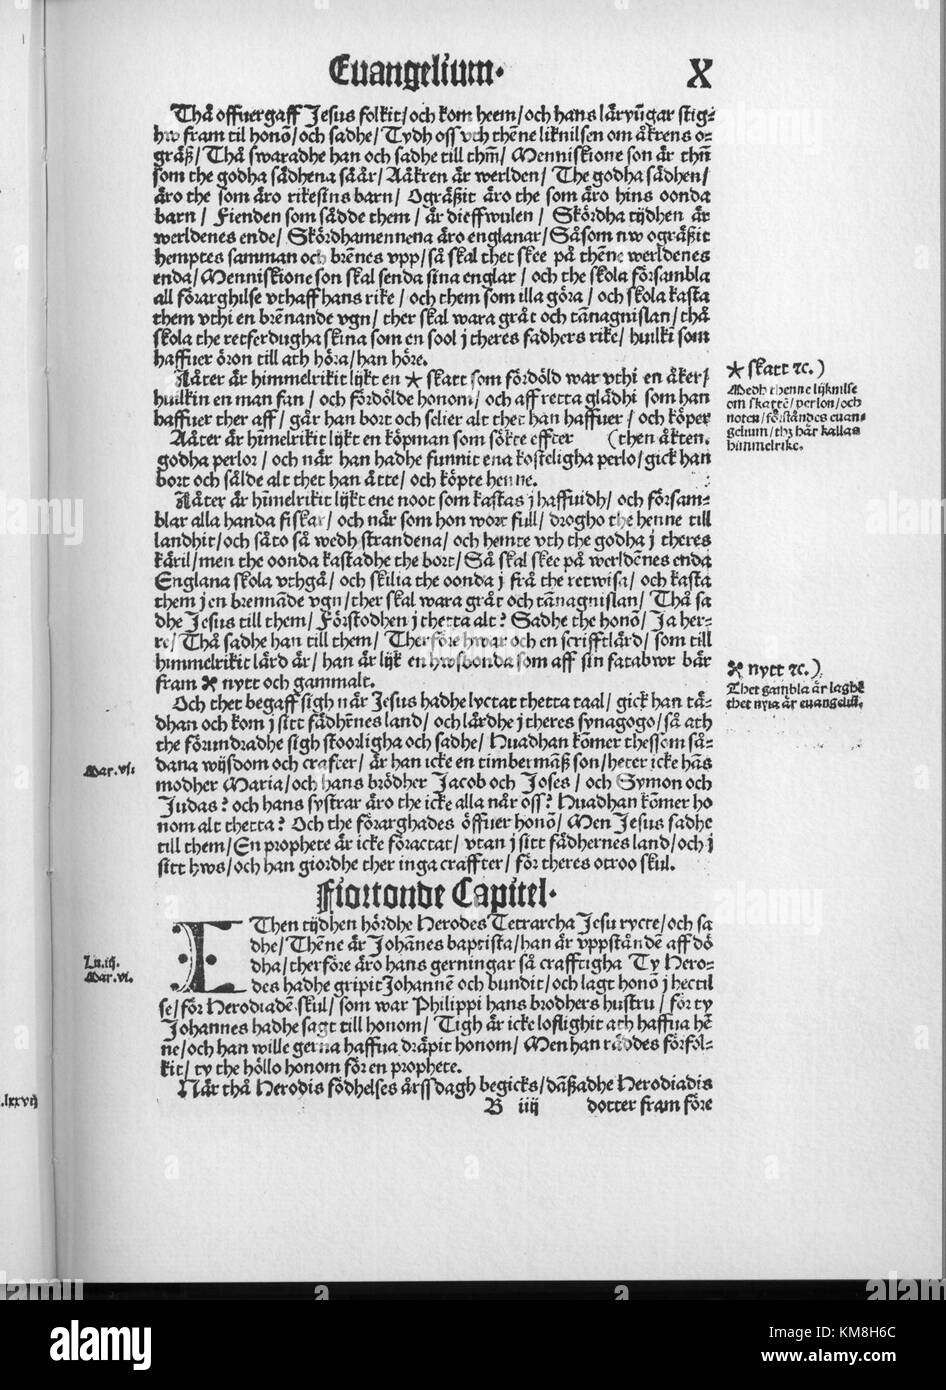 Euangelium. X
Thå offuergaff Jesus folkit/och kom heem/och hans läryũgar stig⸗
hw fram til honõ/och sadhe/Tydh oss vth thẽne liknilsen om åkrens o⸗
gräß/Thå swaradhe han och sadhe till thm̃/Menniskione son är thñ
som the godha sädhena såår/Aåkren är werlden/The godha sädhen/
äro the som äro rikesins barn/Ogräßit äro the som äro hins oonda
barn/Fienden som sådde them/är dieffwulen/Skördha tijdhen är
werldenes ende/Skördhamennena äro englanar/Såsom nw ogräßit
hemptes samman och brẽnes vpp/så skal thet skee på thẽne werldenes
enda/Menniskione son skal senda sina englar/och the skola försambla
all förarghilse vthaff hans rike/och them som illa göra/och skola kasta
them vthi en brẽnande vgn/ther skal wara gråt och tãnagnislan/thå
skola the retferdugha skina som en sool j theres fadhers rike/huilkĩ som
haffuer öron till ath höra/han höre.
Aäter är himmelrikit lijkt en * skatt som fördöld war vthi en åker/
huilkin en man fan/och fördölde honom/och aff retta glädhi som han
haffuer ther aff/går han bort och selier alt thet han haffuer/och köper
Aäter är hĩmelrikit lijkt en köpman som sökte effter (then åkren.
godha perlor/och när han hadhe funnit ena kosteligha perlo/gick han
bort och sålde alt thet han åtte/och köpte henne.
Aäter är hĩmelrikit lijkt ene noot som kastas j haffuidh/och försam⸗
blar alla handa fiskar/och när som hon wort full/drogho the henne till
landhit/och såto så wedh strandena/och hemte vth the godha j theres
käril/men the oonda kastadhe the bort/Så skal skee på werldẽnes enda
Englana skola vthgå/och skilia the oonda j frå the retwisa/och kasta
them j en brennãde vgn/ther skal wara gråt och tãnagnislan/Thå sa
dhe Jesus till them/Förstodhen j thetta alt? Sadhe the honõ/Ja her⸗
re/Thå sadhe han till them/Therföre hwar och en scrifftlärd/som till
himmelrikit lärd är/han är lijk en hwsbonda som aff sin fatabwr bär
fram ⚒ nytt och gammalt.
Och thet begaff sigh när Jesus hadhe lyctat thetta taal/gick han tä⸗
dhan och kom j sitt fädhẽnes land/och lärdhe j theres synagogo/så ath
the förundradhe sigh stoorligha och sadhe/Huadhan kõmer thessom så⸗
dana wijsdom och crafter/är han icke en timbermãß son/heter icke hãs
modher Maria/och hans brödher Jacob och Joses/och Symon och
Judas? och hans systrar äro the icke alla när oss? Huadhan kõmer ho
nom alt thetta? Och the förarghades öffuer honõ/Men Jesus sadhe
till them/En prophete är icke föractat/vtan j sitt fädhernes land/och j
sitt hws/och han giordhe ther inga craffter/för theres otroo skul.
Fiortonde Capitel.
EThen tijdhen hördhe Herodes Tetrarcha Jesu rycte/och sa
dhe/Thẽne är Johãnes baptista/han är vppståndẽ aff dö
dha/therföre äro hans gerningar så crafftigha Ty Hero⸗
des hadhe gripit Johannẽ och bundit/och lagt honõ j hectil
se/för Herodiadẽ skul/som war Philippi hans brodhers hustru/för ty
Johannes hadhe sagt till honom/Tigh är icke loflighit ath haffua hẽ
ñe/och han wille gerna haffua dräpit honom/Men han räddes förfol⸗
kit/ty the höllo honom för en prophete.
När thå Herodis födhelses årss dagh begicks/dãßadhe Herodiadis
B iiij dotter fram före
* skatt ⁊c.)
Medh thenne lijknilse
om skattẽ/perlon/och
noten/förståndes euan⸗
gelium/thz här kallas
himmelrike.
⚒ nytt ⁊c.)
Thet gambla är laghẽ
thet nyia är euangeliũ.
Mar.vi:
Lu.iij.
Mar.vi.
.lxxvij
alamy
Image ID: KM8H6C
www.alamy.com